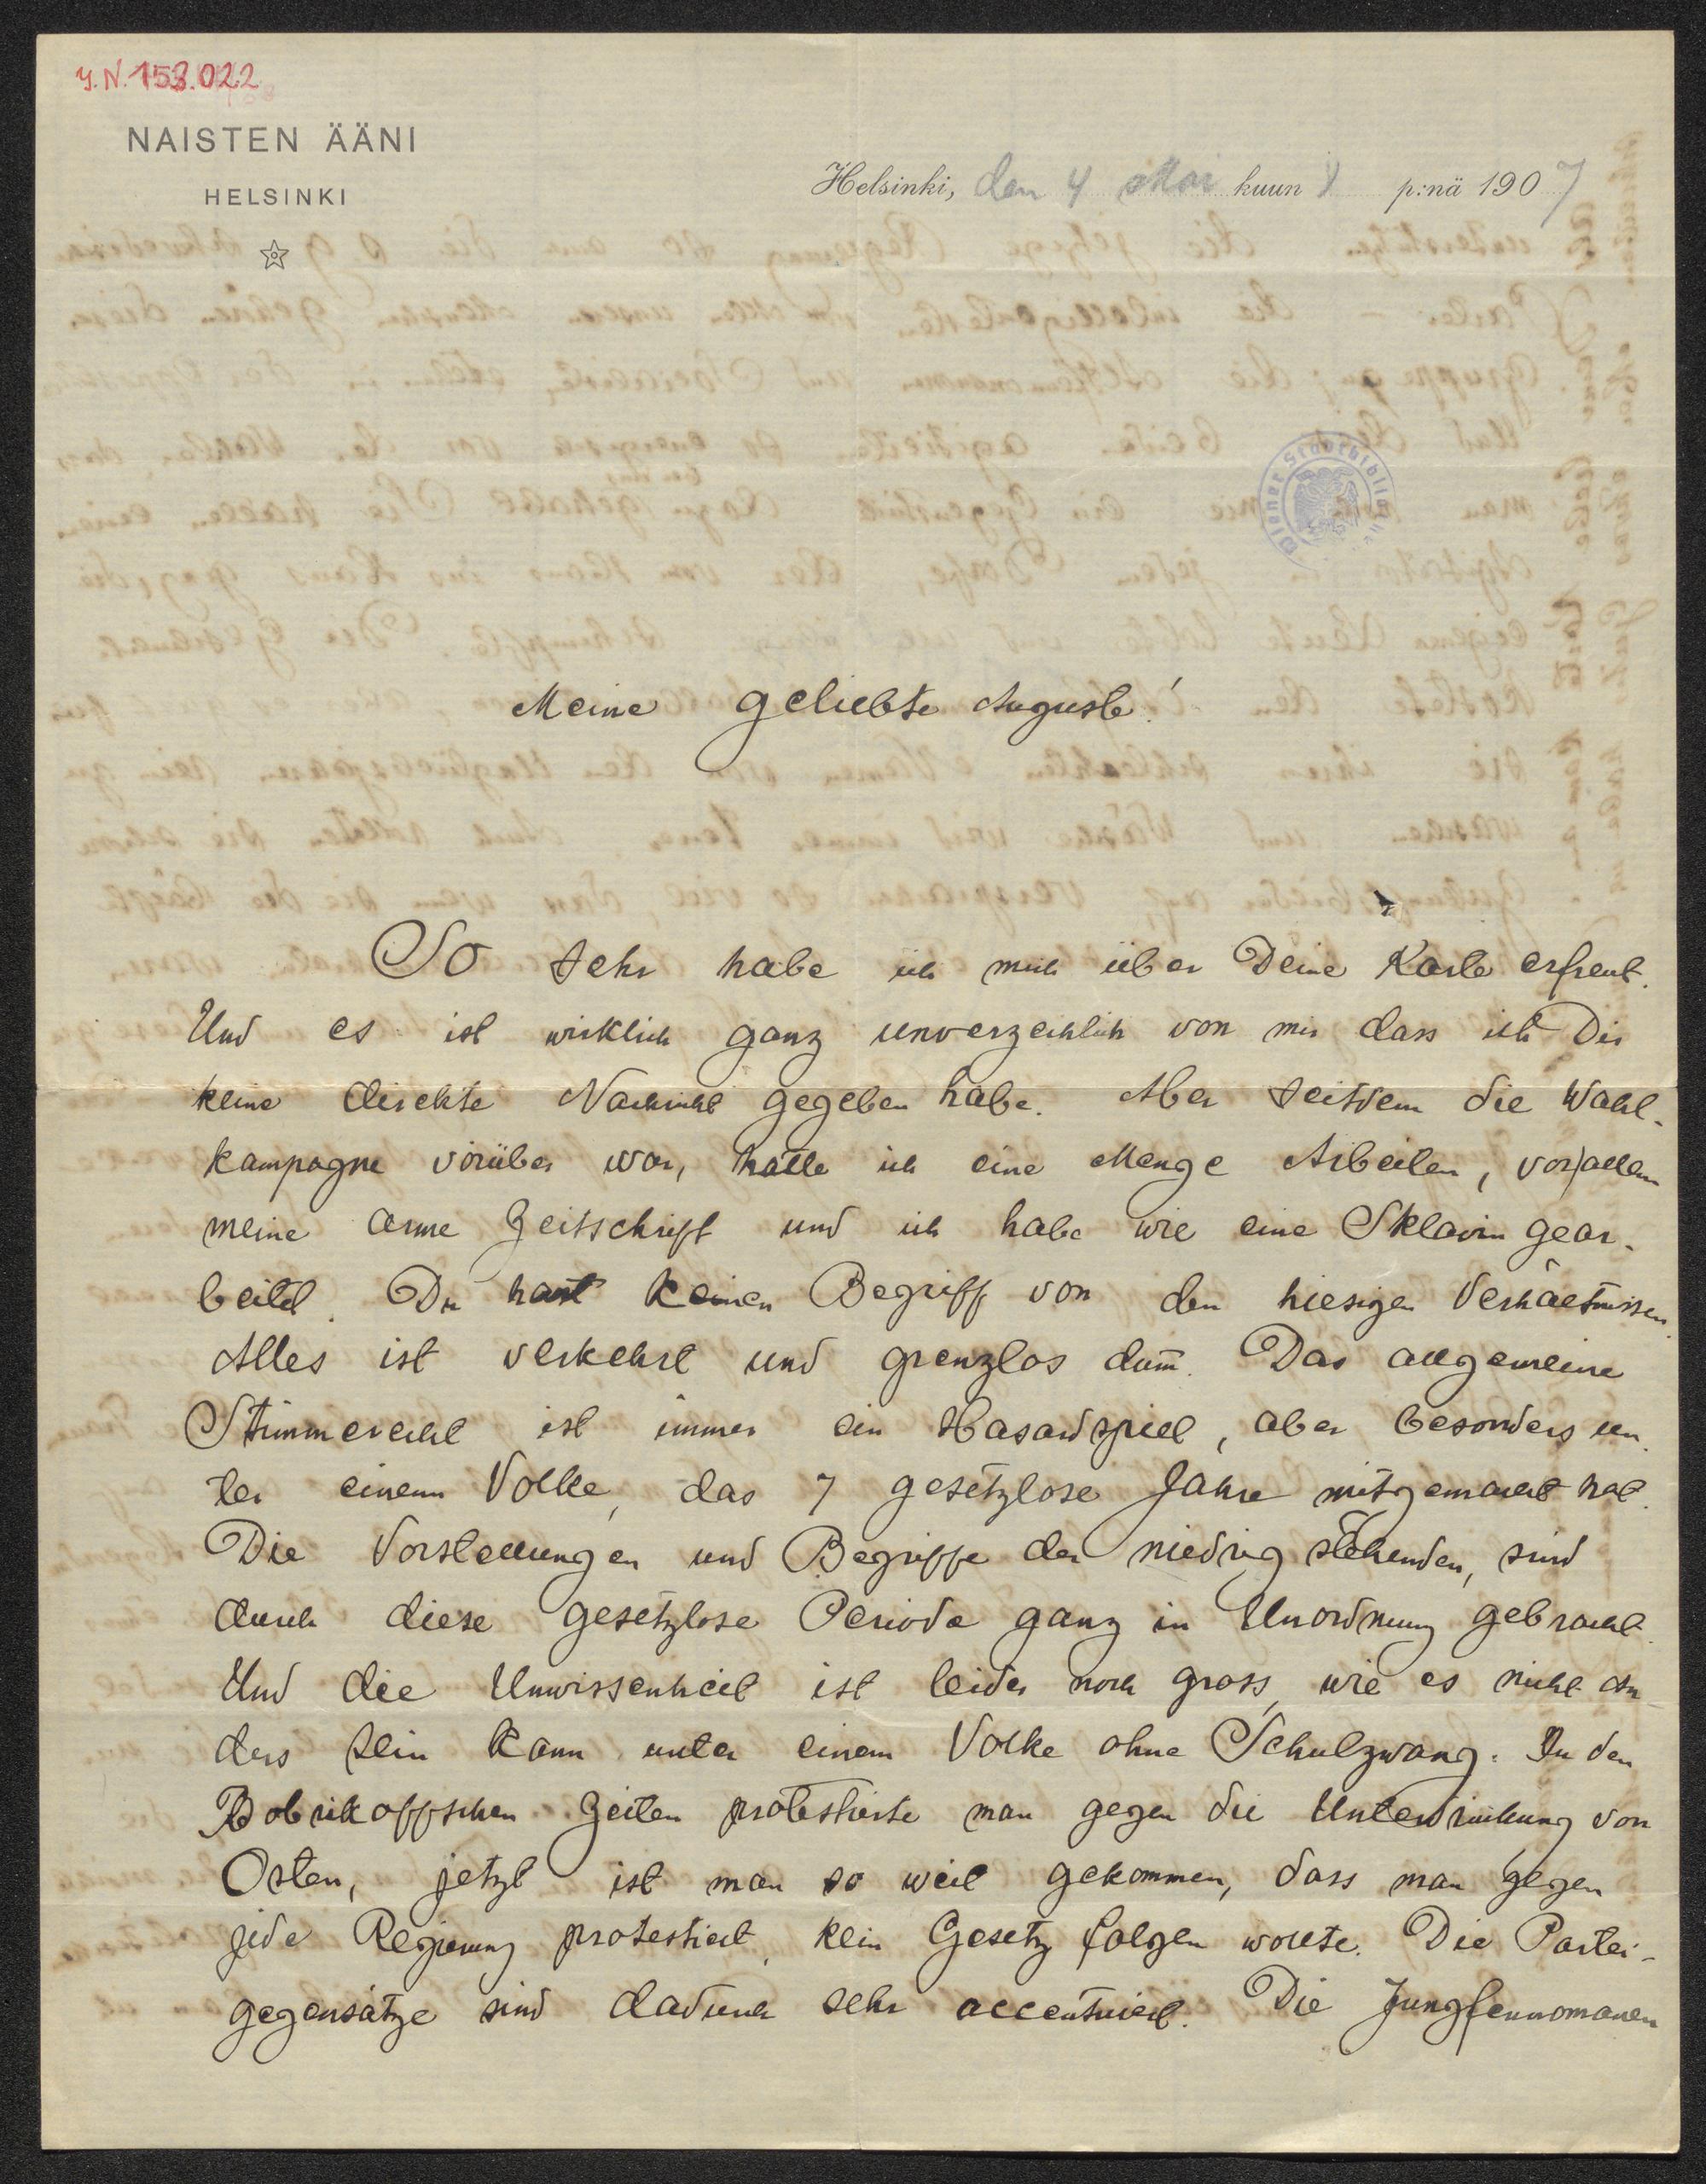 J.N. 153.022
NAISTEN ÄÄNI
HELSINKI
Helsinki, den 4 Mai kuun p:nä 1907
Wiener Stadtbibliothek
Meine geliebte Auguste!
So sehr habe ich mich über Deine Karte erfreut.
Und es ist wirklich ganz unverzeihlich von mir dass ich Dir
keine direkte Nachricht gegeben habe. Aber seitdem die Wahl-
kampagne vorüber war, hatte ich eine Menge Arbeiten, vor allem
meine arme Zeitschrift und ich habe wie eine Sklavin gear-
beitet. Du hast keinen Begriff von den hiesigen Verhältnissen.
Alles ist verkehrt und grenzlos dum̄. Das allgemeine
Stimmerecht ist immer ein Hasardspiel, aber besonders un-
ter einem Volke, das 7 gesetzlose Jahre mitgemacht hat.
Die Vorstellungen und Begriffe der niedrig stehenden, sind
durch diese gesetzlose Periode ganz in Unordnung gebracht.
Und die Unwissenheit ist leider noch gross, wie es nicht an
ders sein kann unter einem Volke ohne Schulzwang. In den
Bobrikoffschen Zeiten protestierte man gegen die Unterdrückung von
Osten, jetzt ist man so weit gekommen, dass man gegen
jede Regierung protestiert, kein Gesetz folgen wollte. Die Partei-
gegensätze sind dadurch sehr accentuiert. Die Jungfennomanen